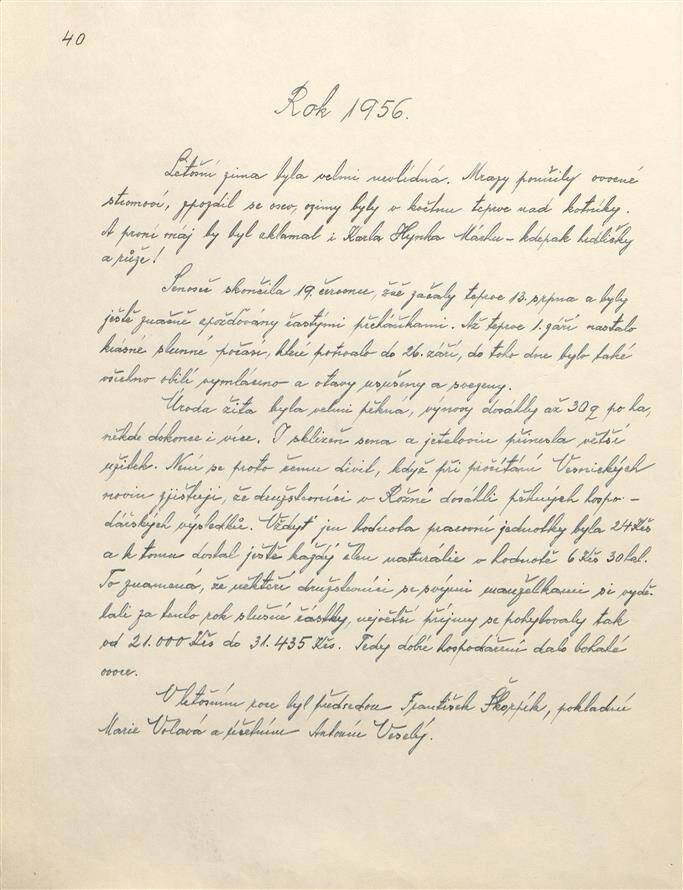 40
Rok 1956.
Letošní zima byla velmi nevlídná. Mrazy poničily ovocné
stromoví, zpozdil se osev, ozimy byly v květnu teprve nad kotníky.
A první máj by byl zklamal i Karla Hynka Máchu – kdepak hrdličky
a růže!
Senoseč skončila 19. července, žně začaly teprve 13. srpna a byly
ještě značně zpožďovány častými přeháňkami. Až teprve 1. září nastalo
krásné slunné počasí, které potrvalo do 26. září, do toho dne bylo také
všechno obilí vymláceno a otavy usušeny a svezeny.
Úroda žita byla velmi pěkná, výnosy dosáhly až 30 q po ha,
někde dokonce i více. I sklizeň sena a jetelovin přinesla větší
užitek. Není se proto čemu divit, když při pročítání Vesnických
novin zjišťuji, že družstevníci v Rožné dosáhli pěkných hospo-
dářských výsledků. Vždyť jen hodnota pracovní jednotky byla 24 Kčs
a k tomu dostal ještě každý člen naturalie v hodnotě 6 Kčs 30 hal.
To znamená, že někteří družstevníci se svými manželkami si vydě-
lali za tento rok slušné částky, největší příjmy se pohybovaly tak
od 21.000 Kčs do 31.435 Kčs. Tedy dobré hospodaření dalo bohaté
ovoce.
V letošním roce byl předsedou František Škorpík, pokladní
Marie Volavá a účetním Antonín Veselý.